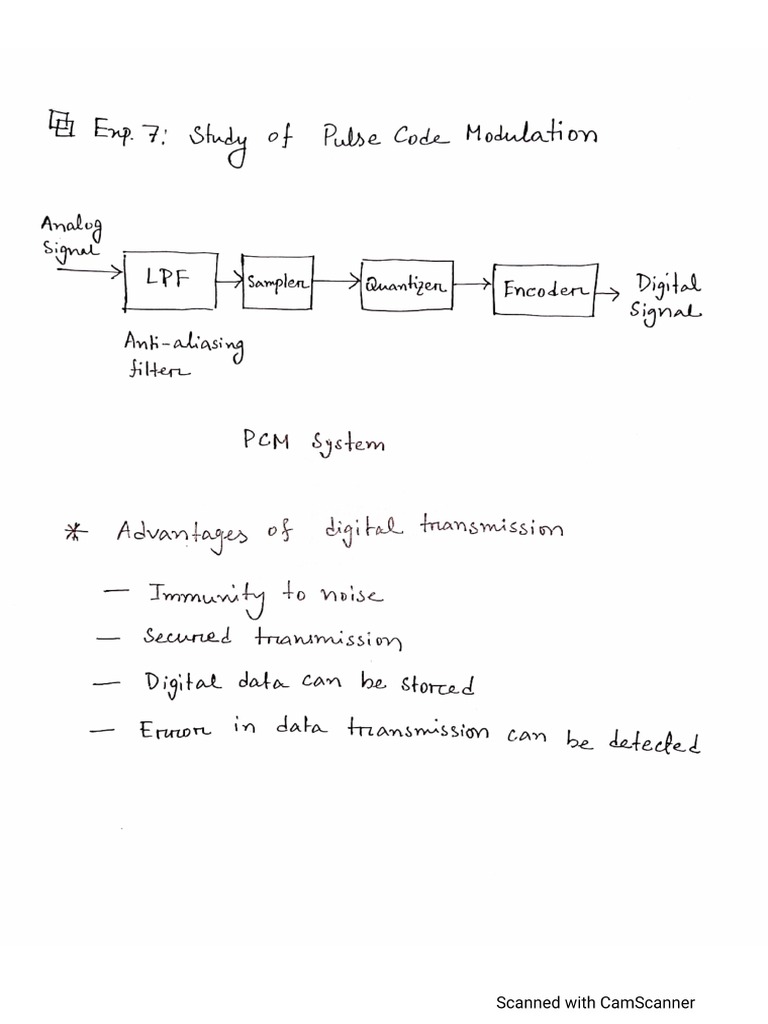 Exp. 7: Study of Pulse Code Modulation
Analog
Signal
LPF
Sampler
Quantizer
Encoder
Digital
Signal
Anti-aliasing
filter
PCM System
* Advantages of digital transmission
— Immunity to noise
— Secured transmission
— Digital data can be stored
— Error in data transmission can be detected
Scanned with CamScanner